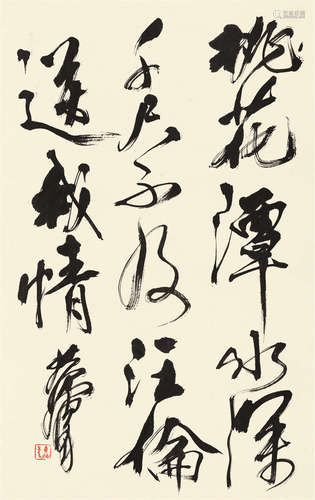 桃花潭水深
千尺不及汪倫
送我情